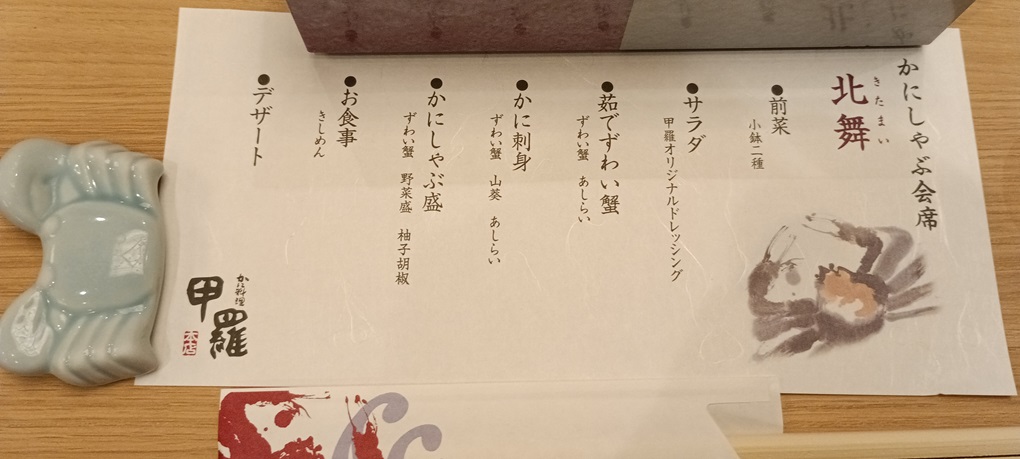 かにしゃぶ会席
きたまい
北舞
●前菜
小鉢二種
●サラダ
甲羅オリジナルドレッシング
●茹でずわい蟹
ずわい蟹 あしらい
●かに刺身
ずわい蟹 山葵 あしらい
●かにしゃぶ盛
ずわい蟹 野菜盛 柚子胡椒
●お食事
きしめん
●デザート
かに料理
甲羅
本店